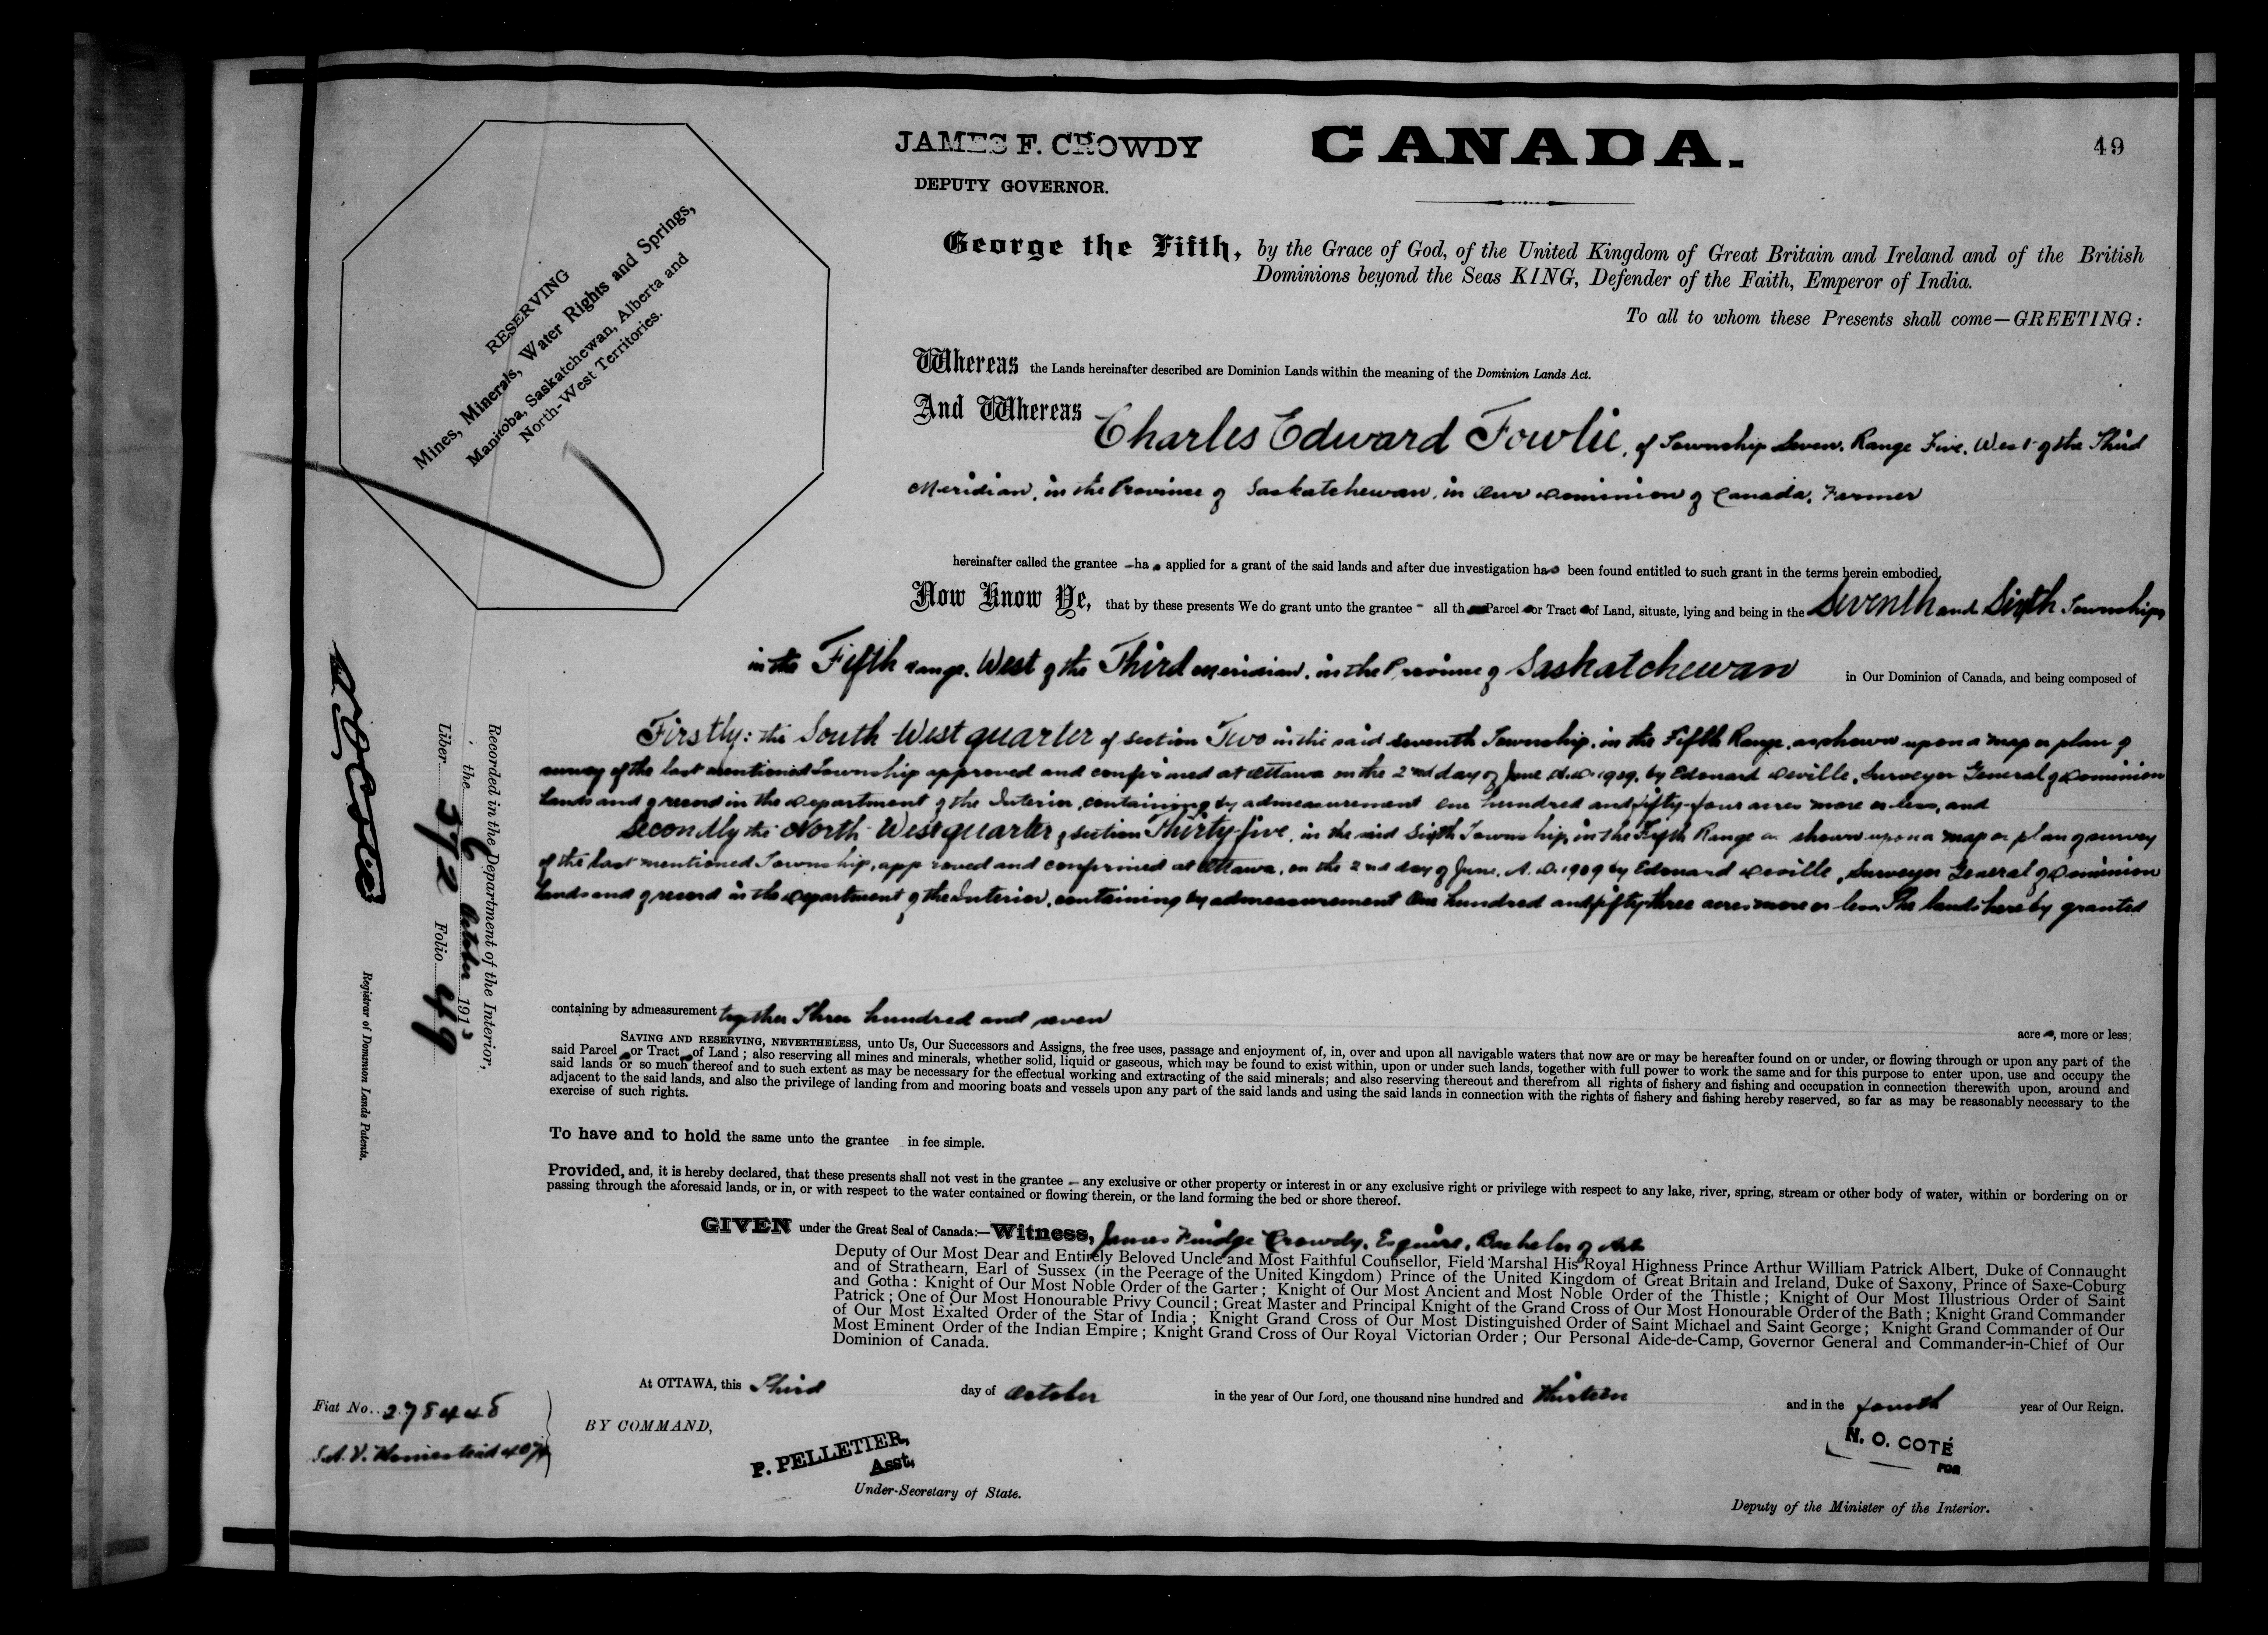 49
JAMES F. CROWDY
DEPUTY GOVERNOR.
CANADA.
RESERVING
Mines, Minerals, Water Rights and Springs,
Manitoba, Saskatchewan, Alberta and
North-West Territories.
George the Fifth, by the Grace of God, of the United Kingdom of Great Britain and Ireland and of the British
Dominions beyond the Seas KING, Defender of the Faith, Emperor of India.
To all to whom these Presents shall come—GREETING:
Whereas the Lands hereinafter described are Dominion Lands within the meaning of the Dominion Lands Act.
And Whereas Charles Edward Fowlie, of Township Seven, Range Five, West of the Third
Meridian, in the Province of Saskatchewan, in Our Dominion of Canada, Farmer
hereinafter called the grantee – has applied for a grant of the said lands and after due investigation has been found entitled to such grant in the terms herein embodied,
Now Know Ye, that by these presents We do grant unto the grantee – all those Parcels or Tracts of Land, situate, lying and being in the Seventh and Sixth Townships
in the Fifth range, West of the Third Meridian, in the Province of Saskatchewan in Our Dominion of Canada, and being composed of
Firstly: the South West quarter of section Two in the said seventh Township, in the Fifth Range, as shown upon a map or plan of
survey of the last mentioned Township approved and confirmed at Ottawa on the 2nd day of June A.D. 1909, by Edouard Deville, Surveyor General of Dominion
Lands and of record in the Department of the Interior, containing by admeasurement One hundred and fifty-four acres more or less, and
Secondly the North West quarter of section Thirty-five, in the said Sixth Township, in the Fifth Range as shown upon a map or plan of survey
of the last mentioned Township, approved and confirmed at Ottawa, on the 2nd day of June, A. D. 1909 by Edouard Deville, Surveyor General of Dominion
Lands and of record in the Department of the Interior, containing by admeasurement One hundred and fifty three acres more or less. The lands hereby granted
containing by admeasurement together Three hundred and seven acres, more or less;
SAVING AND RESERVING, NEVERTHELESS, unto Us, Our Successors and Assigns, the free uses, passage and enjoyment of, in, over and upon all navigable waters that now are or may be hereafter found on or under, or flowing through or upon any part of the
said Parcels or Tracts of Land; also reserving all mines and minerals, whether solid, liquid or gaseous, which may be found to exist within, upon or under such lands, together with full power to work the same and for this purpose to enter upon, use and occupy the
said lands or so much thereof and to such extent as may be necessary for the effectual working and extracting of the said minerals; and also reserving thereout and therefrom all rights of fishery and fishing and occupation in connection therewith upon, around and
adjacent to the said lands, and also the privilege of landing from and mooring boats and vessels upon any part of the said lands and using the said lands in connection with the rights of fishery and fishing hereby reserved, so far as may be reasonably necessary to the
exercise of such rights.
To have and to hold the same unto the grantee in fee simple.
Provided, and, it is hereby declared, that these presents shall not vest in the grantee – any exclusive or other property or interest in or any exclusive right or privilege with respect to any lake, river, spring, stream or other body of water, within or bordering on or
passing through the aforesaid lands, or in, or with respect to the water contained or flowing therein, or the land forming the bed or shore thereof.
GIVEN under the Great Seal of Canada:—Witness, James Fuidge Crowdy, Esquire, Bachelor of Arts
Deputy of Our Most Dear and Entirely Beloved Uncle and Most Faithful Counsellor, Field Marshal His Royal Highness Prince Arthur William Patrick Albert, Duke of Connaught
and of Strathearn, Earl of Sussex (in the Peerage of the United Kingdom) Prince of the United Kingdom of Great Britain and Ireland, Duke of Saxony, Prince of Saxe-Coburg
and Gotha: Knight of Our Most Noble Order of the Garter; Knight of Our Most Ancient and Most Noble Order of the Thistle; Knight of Our Most Illustrious Order of Saint
Patrick; One of Our Most Honourable Privy Council; Great Master and Principal Knight of the Grand Cross of Our Most Honourable Order of the Bath; Knight Grand Commander
of Our Most Exalted Order of the Star of India; Knight Grand Cross of Our Most Distinguished Order of Saint Michael and Saint George; Knight Grand Commander of Our
Most Eminent Order of the Indian Empire; Knight Grand Cross of Our Royal Victorian Order; Our Personal Aide-de-Camp, Governor General and Commander-in-Chief of Our
Dominion of Canada.
At OTTAWA, this Third day of October in the year of Our Lord, one thousand nine hundred and thirteen and in the fourth year of Our Reign.
BY COMMAND,
P. PELLETIER,
Asst.
Under-Secretary of State.
N. O. COTÉ
FOR
Deputy of the Minister of the Interior.
Recorded in the Department of the Interior,
the 6 October 1913
Liber 572 Folio 49
Registrar of Dominion Lands Patents.
Fiat No. 278448
S.A.V. Homestead